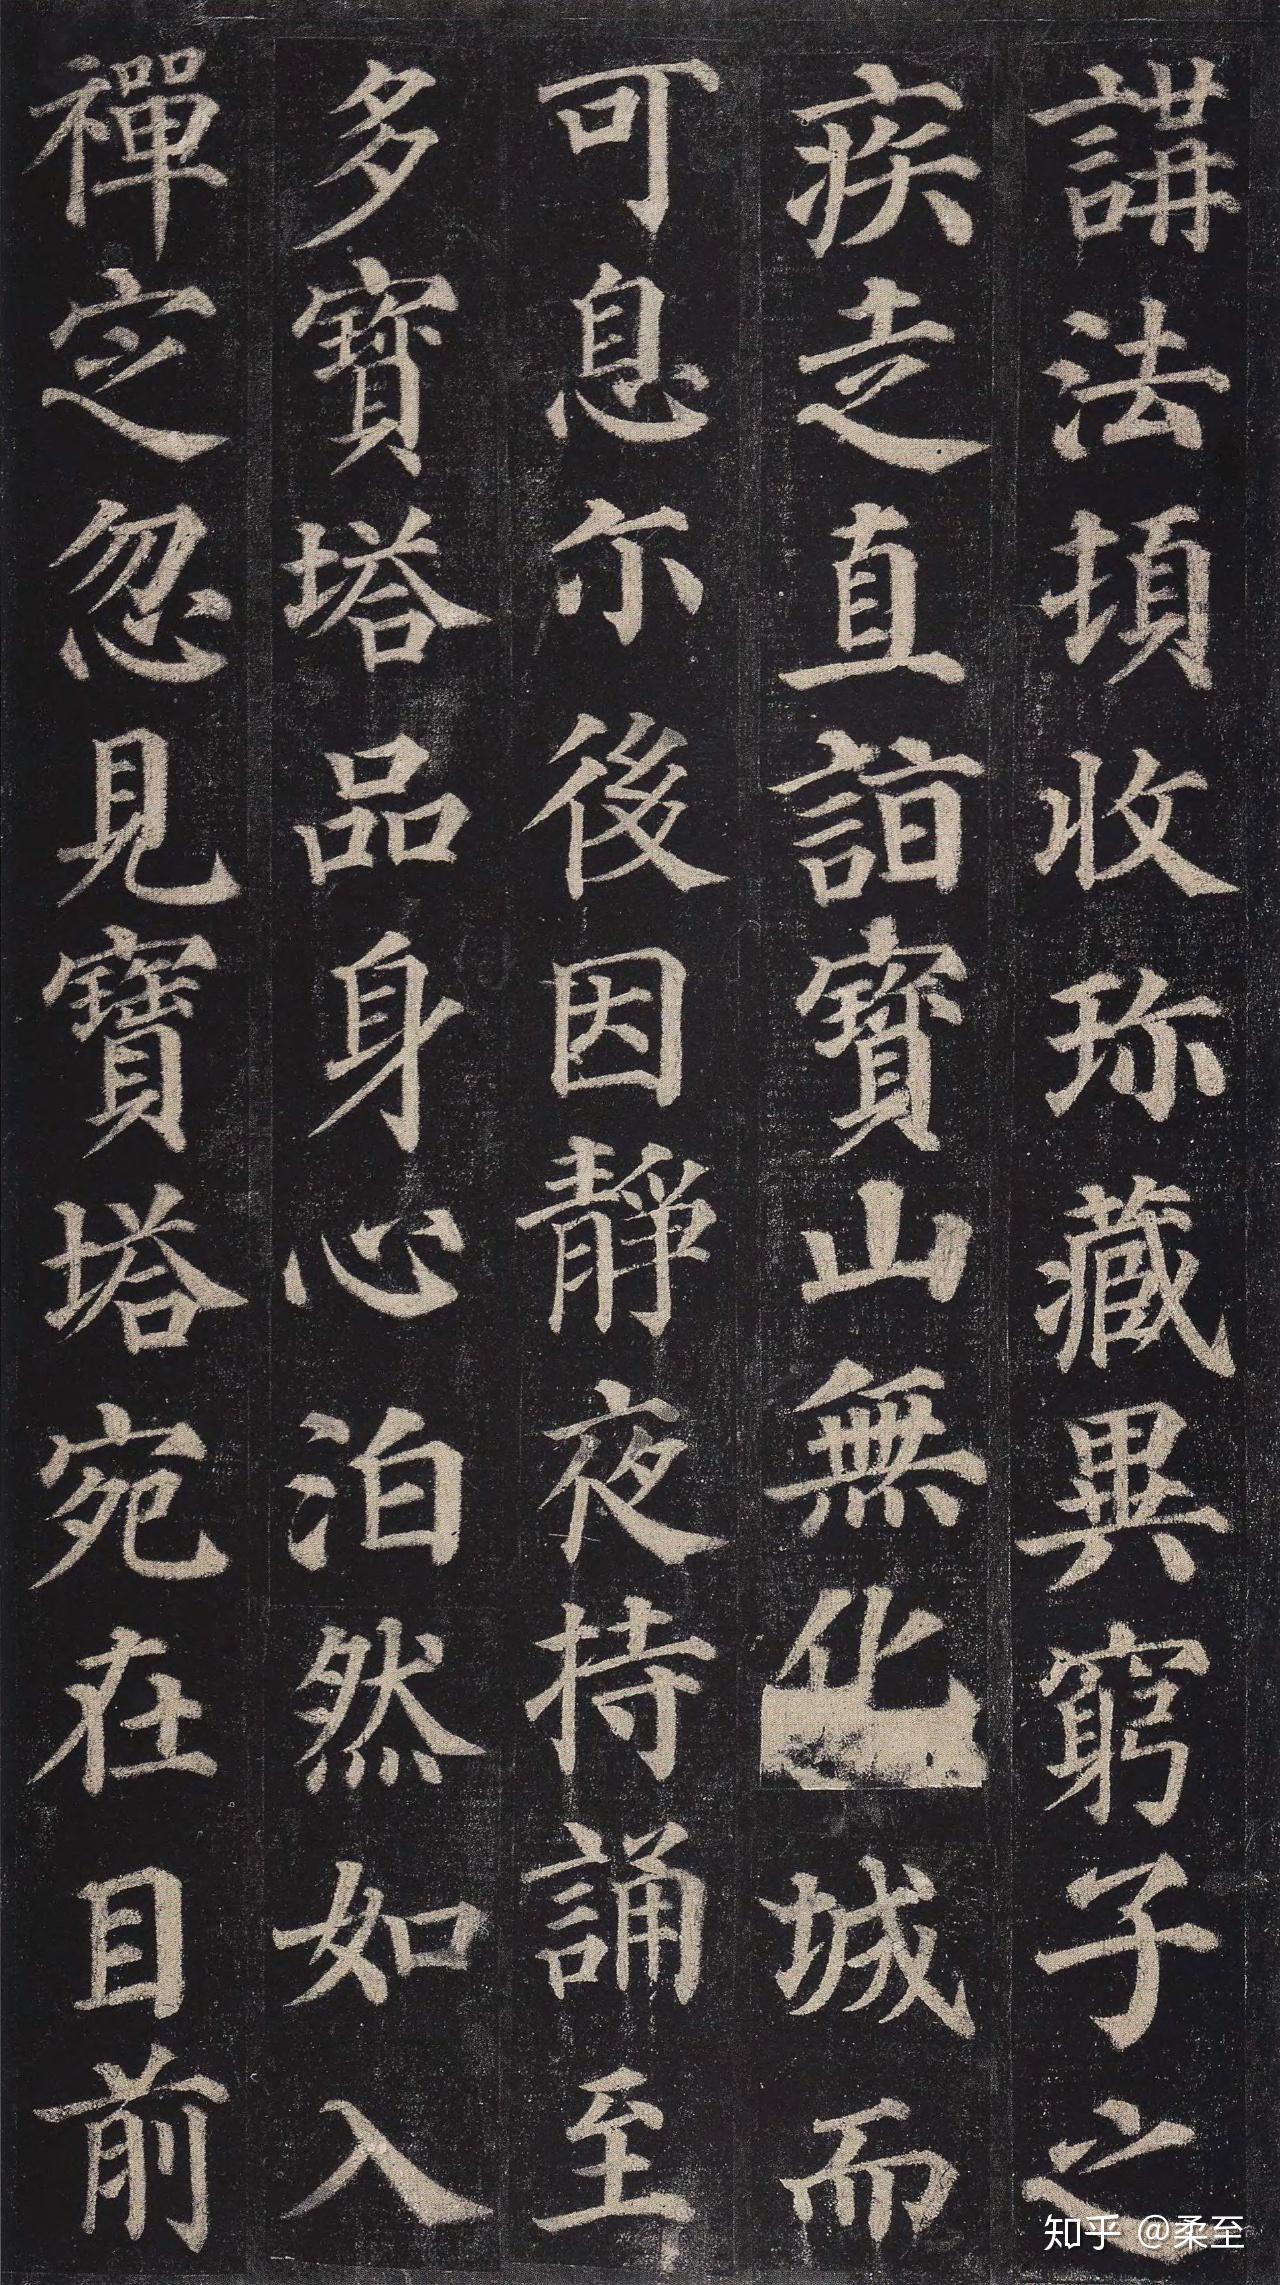 講法頓收珎藏異窮子之
疾走直詣寳山無化城而
可息尒後因靜夜持誦至
多寳塔品身心泊然如入
禪定忽見寶塔宛在目前
知乎 @柔至